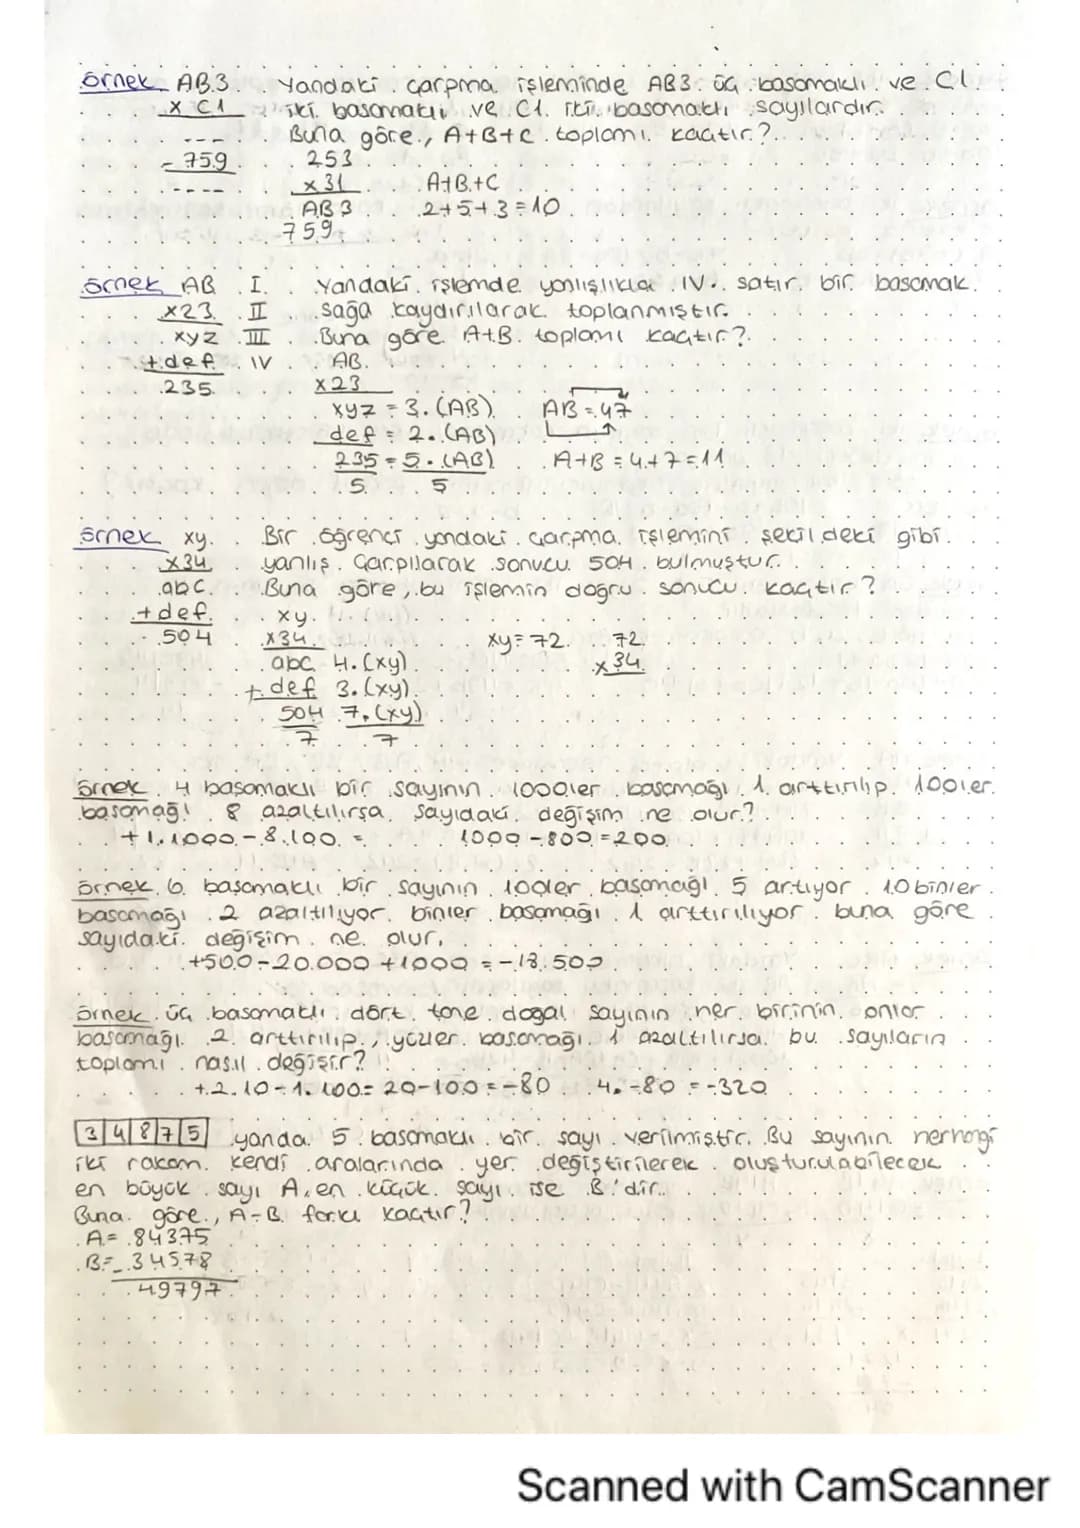 örnek AB3 Yandaki çarpma işleminde AB3 üç basamaklı ve C1
x C1 iki basamaklı ve C1 iki basamaklı sayılardır.
--- Buna göre, A+B+C toplamı kaçtır?
- 759 253
---- x 31 A+B+C
AB3 2+5+3=10
759
örnek AB I. Yandaki işlemde yanlışlıkla IV. satır bir basamak
x23 II sağa kaydırılarak toplanmıştır.
xyz III Buna göre A+B toplamı kaçtır?
+def IV AB
235 x23
xyz = 3.(AB) AB = 47
def = 2.(AB)
235 = 5.(AB) A+B = 4+7=11
5 5
örnek xy Bir öğrenci yandaki çarpma işlemini şekildeki gibi
x34 yanlış çarpılarak sonucu 504 bulmuştur.
abc Buna göre, bu işlemin doğru sonucu kaçtır?
+def xy
504 x34 xy=72 72
abc 4.(xy) x34
+def 3.(xy)
504 7.(xy)
7 7
örnek 4 basamaklı bir sayının 1000ler basamağı 1 arttırılıp 100ler
basamağı 8 azaltılırsa sayıdaki değişim ne olur?
+1.1000-8.100 = 1000-800=200
örnek 6 basamaklı bir sayının 100ler basamağı 5 artıyor 10 binler
basamağı 2 azaltılıyor binler basamağı 1 arttırılıyor buna göre
sayıdaki değişim ne olur.
+500-20.000+1000 = -18.500
örnek üç basamaklı dört tane doğal sayının her birinin onlar
basamağı 2 arttırılıp, yüzler basamağı 1 azaltılırsa bu sayıların
toplamı nasıl değişir?
+2.10-1.100= 20-100 = -80 4.-80 = -320
34875 yanda 5 basamaklı bir sayı verilmiştir. Bu sayının herhangi
iki rakam kendi aralarında yer değiştirilerek oluşturulabilecek
en büyük sayı A, en küçük sayı ise B'dir.
Buna göre, A-B farkı kaçtır?
A= 84375
B=- 34578
49797
Scanned with CamScanner